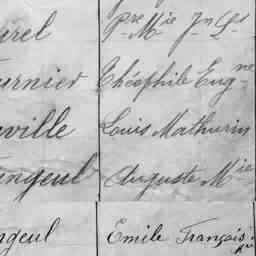 urel Pre Mie Jn Ls
urnier Théophile Eugne
ville Louis Mathurin
ngeul Auguste Mie
ngeul Emile François